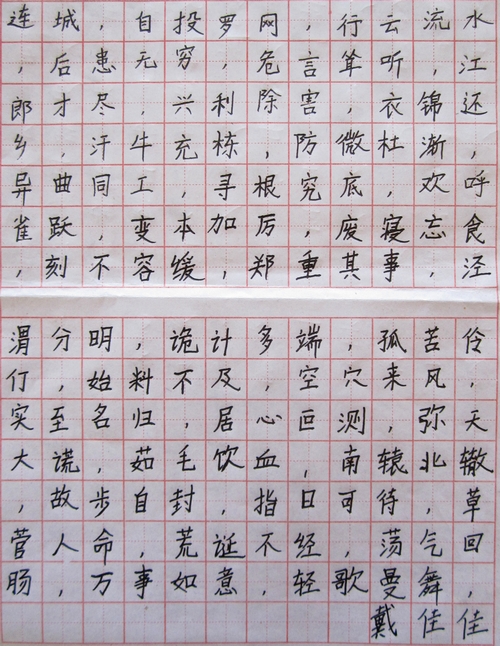 连城，自投罗网，行云流水
，后患无穷，危言耸听，江
郎才尽，兴利除害，衣锦还
乡，汗牛充栋，防微杜渐，
异曲同工，寻根究底，欢呼
雀跃，变本加厉，废寝忘食
，刻不容缓，郑重其事，泾
渭分明，诡计多端，孤苦伶
仃，始料不及，空穴来风，
实至名归，居心叵测，弥天
大谎，茹毛饮血，南辕北辙
，故步自封，指日可待，草
菅人命，荒诞不经，荡气回
肠，万事如意，轻歌曼舞，
戴佳佳